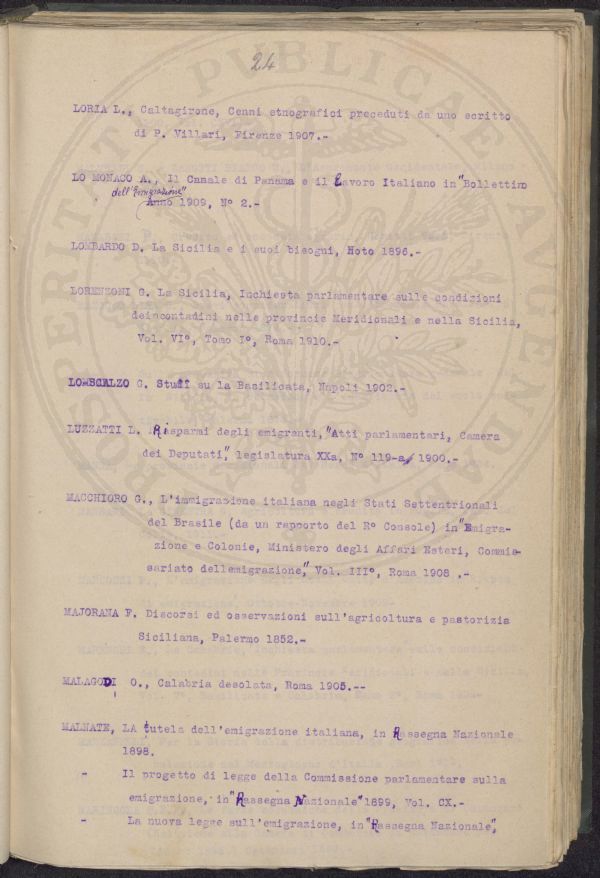 24
LORIA L., Caltagirone, Cenni etnografici preceduti da uno scritto
di P. Villari, Firenze 1907.-
LO MONACO A., Il Canale di Panama e il Lavoro Italiano in "Bollettino
dell'Emigrazione"
Anno 1909, N° 2.-
LOMBARDO D. La Sicilia e i suoi bisogni, Noto 1896.-
LORENZONI G. La Sicilia, Inchiesta parlamentare sulle condizioni
deincontadini nelle provincie Meridionali e nella Sicilia,
Vol. VI°, Tomo I°, Roma 1910.-
LOMBSCALZO G. Studi su la Basilicata, Napoli 1902.-
LUZZATTI L. Risparmi degli emigranti, "Atti parlamentari, Camera
dei Deputati", legislatura XXa, N° 119-a, 1900.-
MACCHIORO G., L'immigrazione italiana negli Stati Settentrionali
del Brasile (da un rapporto del R° Console) in "Emigra-
zione e Colonie, Ministero degli Affari Esteri, Commis-
sariato dellemigrazione", Vol. III°, Roma 1908 .-
MAJORANA F. Discorsi ed osservazioni sull'agricoltura e pastorizia
Siciliana, Palermo 1852.-
MALAGODI O., Calabria desolata, Roma 1905.--
MALNATE, LA tutela dell'emigrazione italiana, in Rassegna Nazionale
1898.
" Il progetto di legge della Commissione parlamentare sulla
emigrazione, in "Rassegna Nazionale" 1899, Vol. CX.-
" La nuova legge sull'emigrazione, in "Rassegna Nazionale",
PROSPERITATI PVBLICAE AVGENDAE